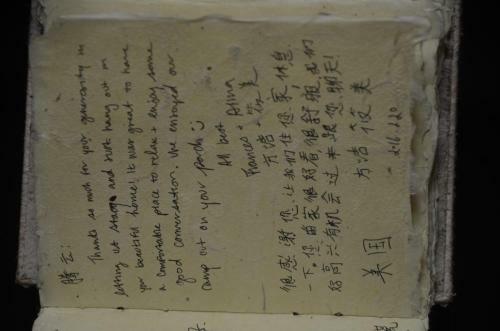 Thanks so much for your generosity in
letting us stay and hang out in
your beautiful home! It was great to have
a comfortable place to relax + enjoy some
good conversation. We enjoyed our
camp out on your porch
All best
Frances + Anna
方洁
很感谢您让我们住您家休息
一下。您家很好看很舒服,我们
好高兴有机会过来跟您聊天!
方洁
美国